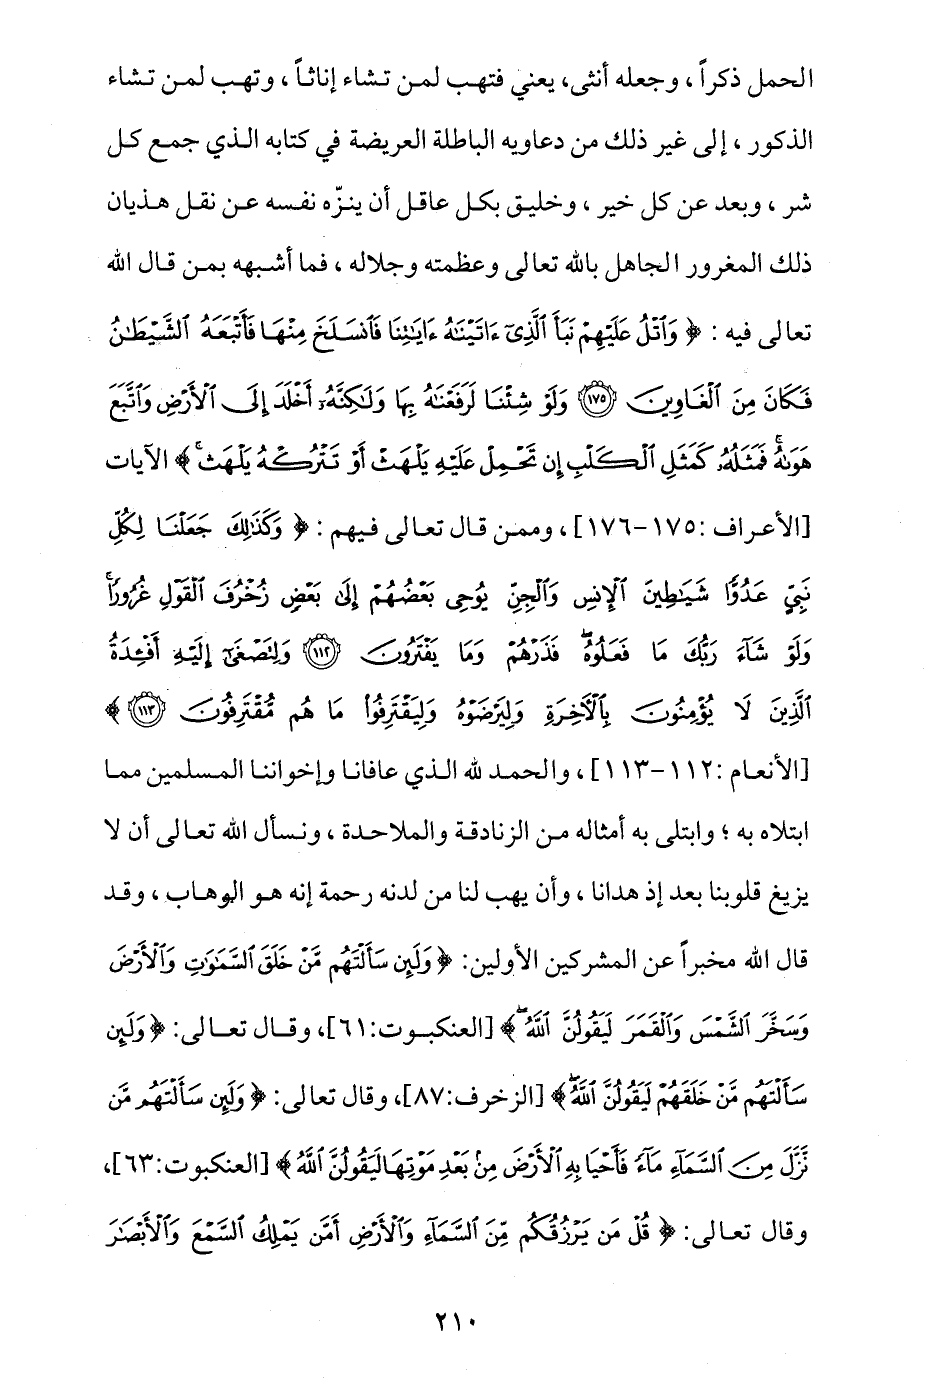 الحمل ذكراً ، وجعله أنثى، يعني فتهب لمن تشاء إناثاً ، وتهب لمن تشاء
الذكور ، إلى غير ذلك من دعاويه الباطلة العريضة في كتابه الذي جمع كل
شر ، وبعد عن كل خير ، وخليق بكل عاقل أن ينزّه نفسه عن نقل هذيان
ذلك المغرور الجاهل بالله تعالى وعظمته وجلاله ، فما أشبهه بمن قال الله
تعالى فيه : ﴿ وَٱتۡلُ عَلَيۡهِمۡ نَبَأَ ٱلَّذِيٓ ءَاتَيۡنَٰهُ ءَايَٰتِنَا فَٱنسَلَخَ مِنۡهَا فَأَتۡبَعَهُ ٱلشَّيۡطَٰنُ
فَكَانَ مِنَ ٱلۡغَاوِينَ ١٧٥ وَلَوۡ شِئۡنَا لَرَفَعۡنَٰهُ بِهَا وَلَٰكِنَّهُۥٓ أَخۡلَدَ إِلَى ٱلۡأَرۡضِ وَٱتَّبَعَ
هَوَىٰهُۚ فَمَثَلُهُۥ كَمَثَلِ ٱلۡكَلۡبِ إِن تَحۡمِلۡ عَلَيۡهِ يَلۡهَثۡ أَوۡ تَتۡرُكۡهُ يَلۡهَثۚ ﴾ الآيات
[الأعراف :١٧٥-١٧٦] ، وممن قال تعالى فيهم : ﴿ وَكَذَٰلِكَ جَعَلۡنَا لِكُلِّ
نَبِيٍّ عَدُوّٗا شَيَٰطِينَ ٱلۡإِنسِ وَٱلۡجِنِّ يُوحِي بَعۡضُهُمۡ إِلَىٰ بَعۡضٖ زُخۡرُفَ ٱلۡقَوۡلِ غُرُورٗاۚ
وَلَوۡ شَآءَ رَبُّكَ مَا فَعَلُوهُۖ فَذَرۡهُمۡ وَمَا يَفۡتَرُونَ ١١٢ وَلِتَصۡغَىٰٓ إِلَيۡهِ أَفۡـِٔدَةُ
ٱلَّذِينَ لَا يُؤۡمِنُونَ بِٱلۡأٓخِرَةِ وَلِيَرۡضَوۡهُ وَلِيَقۡتَرِفُواْ مَا هُم مُّقۡتَرِفُونَ ١١٣ ﴾
[الأنعام :١١٢-١١٣] ، والحمد لله الذي عافانا وإخواننا المسلمين مما
ابتلاه به ؛ وابتلى به أمثاله من الزنادقة والملاحدة ، ونسأل الله تعالى أن لا
يزيغ قلوبنا بعد إذ هدانا ، وأن يهب لنا من لدنه رحمة إنه هو الوهاب ، وقد
قال الله مخبراً عن المشركين الأولين: ﴿ وَلَئِن سَأَلۡتَهُم مَّنۡ خَلَقَ ٱلسَّمَٰوَٰتِ وَٱلۡأَرۡضَ
وَسَخَّرَ ٱلشَّمۡسَ وَٱلۡقَمَرَ لَيَقُولُنَّ ٱللَّهُۖ ﴾ [العنكبوت:٦١]، وقال تعالى: ﴿ وَلَئِن
سَأَلۡتَهُم مَّنۡ خَلَقَهُمۡ لَيَقُولُنَّ ٱللَّهُۖ ﴾ [الزخرف:٨٧]، وقال تعالى: ﴿ وَلَئِن سَأَلۡتَهُم مَّن
نَّزَّلَ مِنَ ٱلسَّمَآءِ مَآءٗ فَأَحۡيَا بِهِ ٱلۡأَرۡضَ مِنۢ بَعۡدِ مَوۡتِهَا لَيَقُولُنَّ ٱللَّهُ ﴾ [العنكبوت:٦٣]،
وقال تعالى: ﴿ قُلۡ مَن يَرۡزُقُكُم مِّنَ ٱلسَّمَآءِ وَٱلۡأَرۡضِ أَمَّن يَمۡلِكُ ٱلسَّمۡعَ وَٱلۡأَبۡصَٰرَ
٢١٠